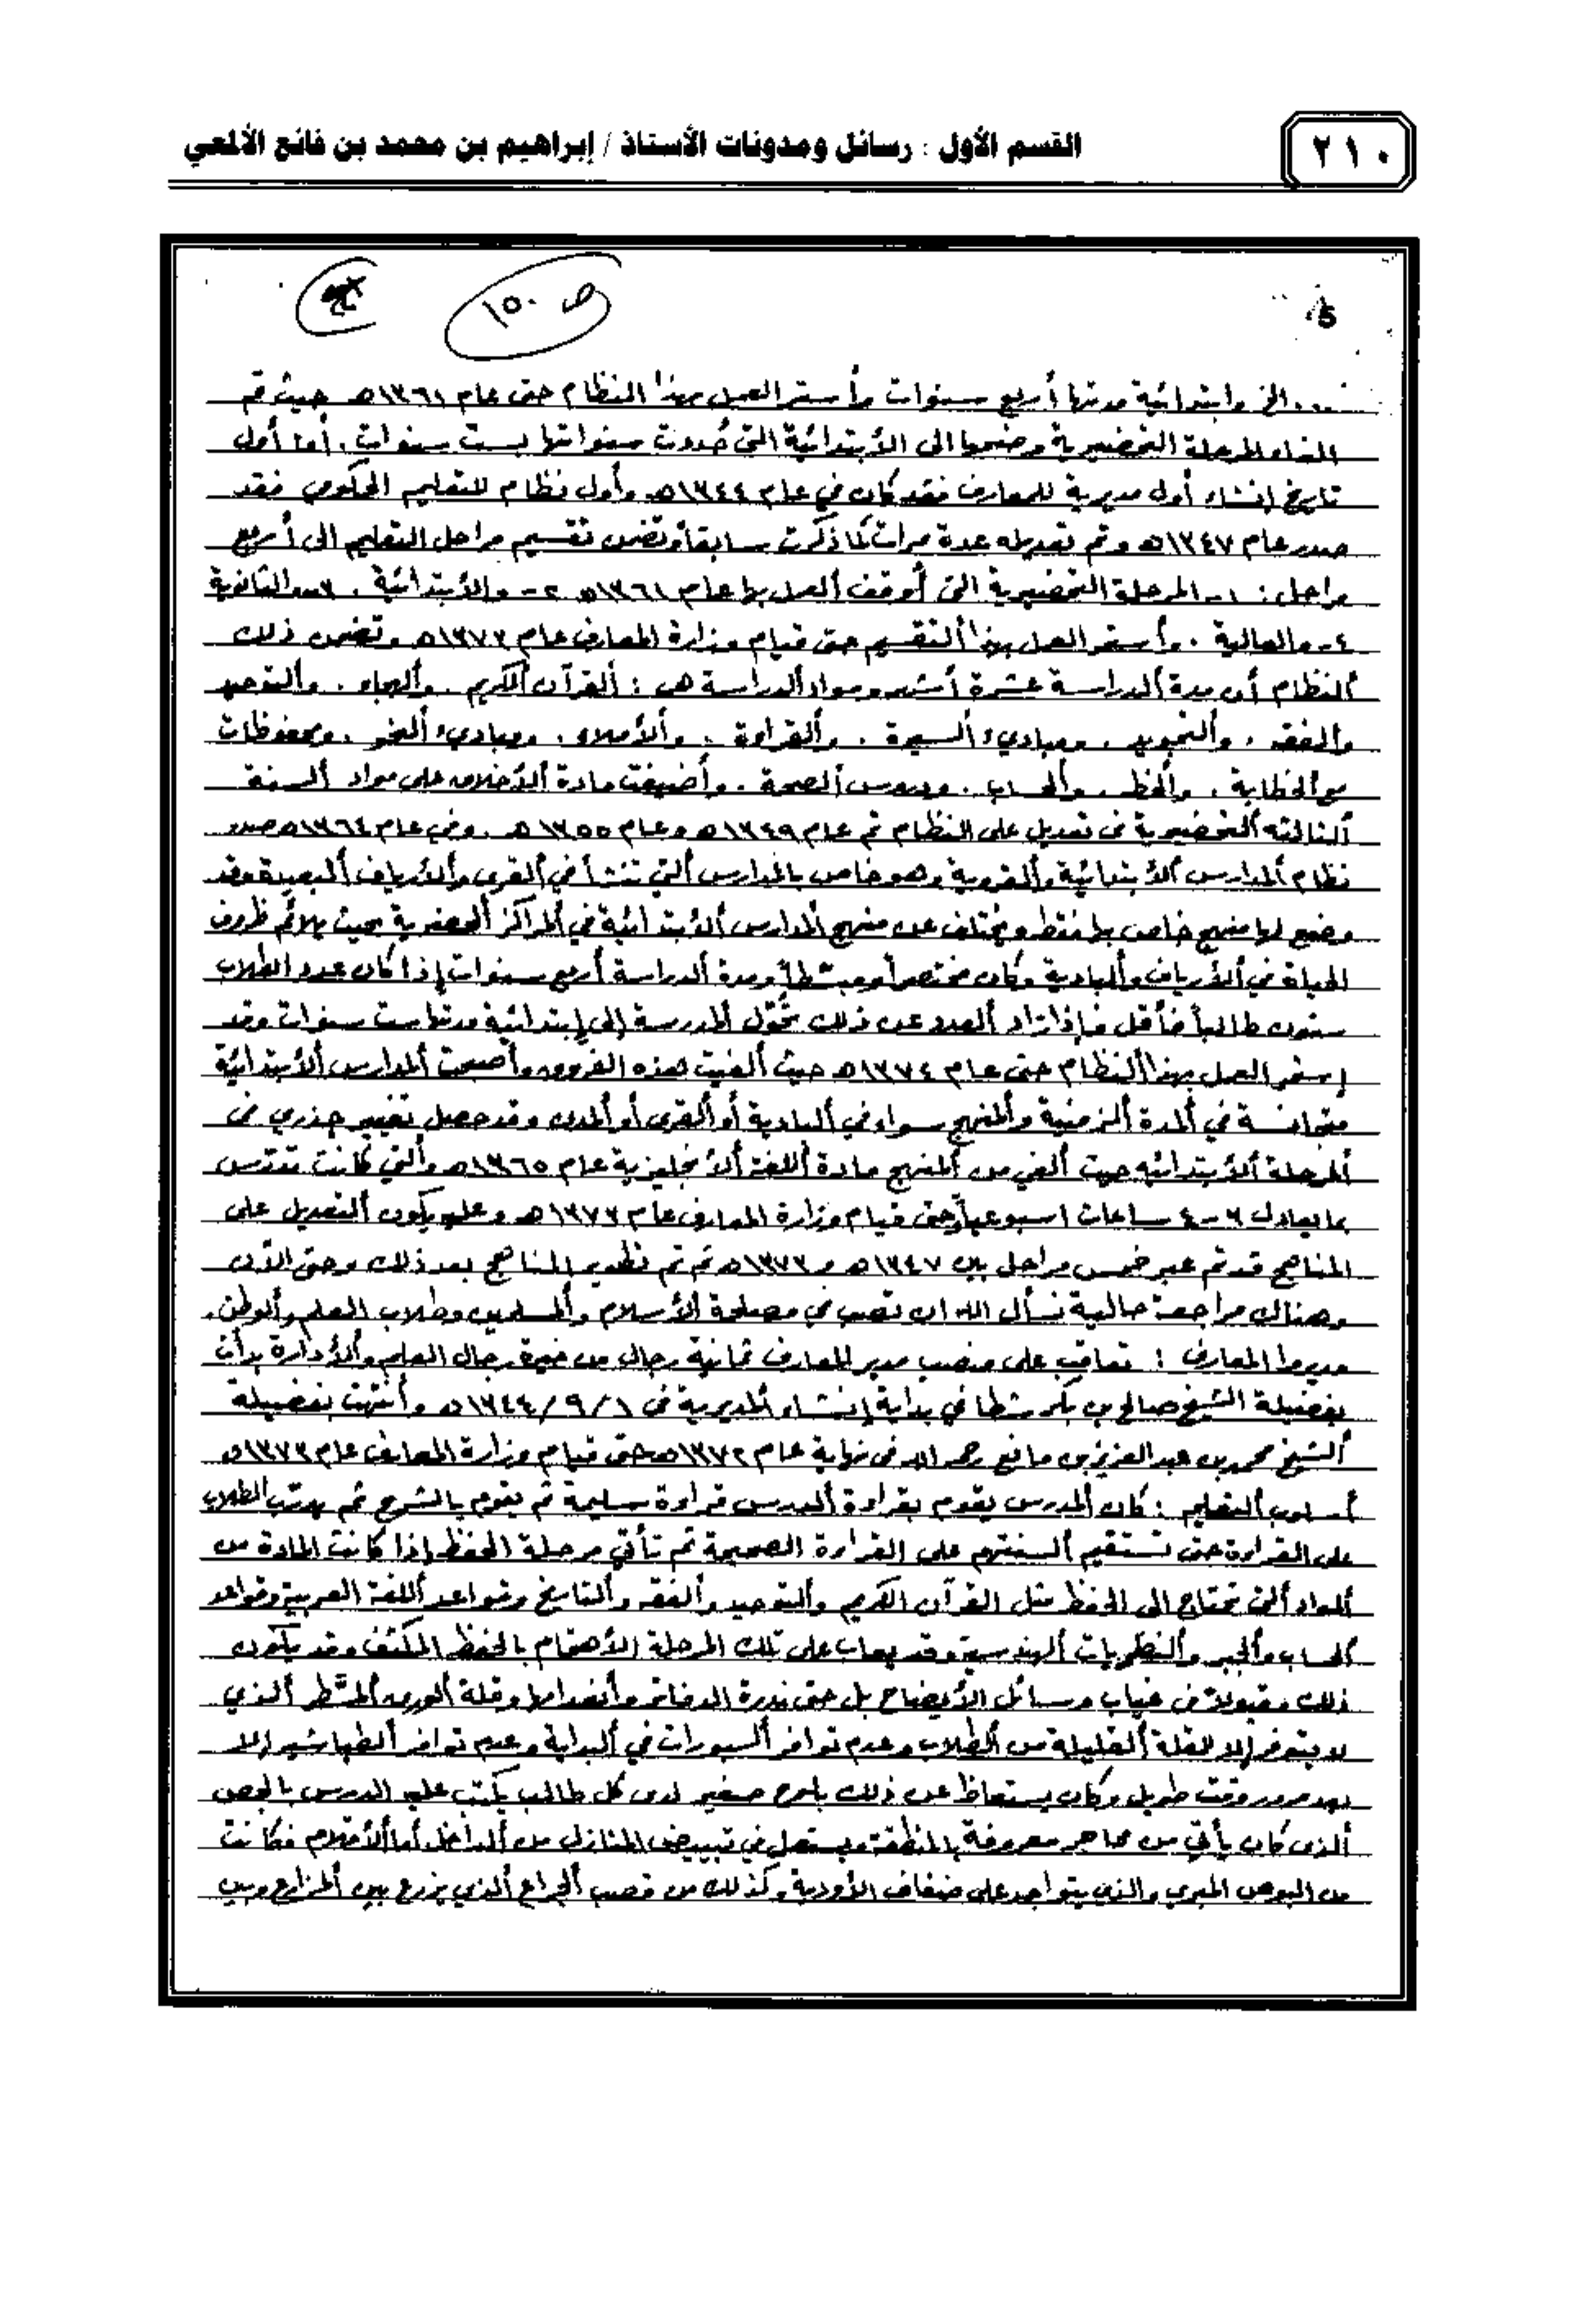 ٢١٠
القسم الأول : رسائل ومدونات الأستاذ / إبراهيم بن محمد بن فائع الألمعي
ص ١٥٠
... الخ وابتدائية مدتها أربع سنوات وأستمر العمل بهذا النظام حتى عام ١٣٦١هـ حيث تم
الغاء المرحلة التحضيرية وضمها الى الأبتدائية التي حُددت سنواتها بست سنوات . أما أول
تاريخ إنشاء أول مديرية للمعارف فقد كان في عام ١٣٤٤هـ وأول نظام للتعليم الحكومي فقد
صدر عام ١٣٤٧هـ وتم تعديله عدة مرات كما ذكرت سابقاً وتضمن تقسيم مراحل التعليم الى أربع
مراحل : ١- المرحلة التحضيرية التي أوقف العمل بها عام ١٣٦١هـ ٢- والأبتدائية . ٣- والثانوية
٤- والعالية . وأستمر العمل بهذا ألتقسيم حتى قيام وزارة المعارف عام ١٣٧٣هـ وتضمن ذلك
ألنظام أن مدة ألدراسة عشرة أشهر ومواد ألدراسة هي : ألقرآن ألكريم . وألهجاء . وألتوحيد
وألفقه . وألتجويد . ومبادئ ألسيرة . وألقراءة . وألأملاء . ومبادئ ألنحو . ومحفوظات
مع الخطابة . وألخط . وألحساب . ودروس ألصحة . وأضيفت مادة ألأخلاق على مواد ألسنة
ألثالثه ألتحضيرية في تعديل على النظام تم عام ١٣٤٩هـ وعام ١٣٥٥هـ . وفي عام ١٣٦٤هـ صدر
نظام ألمدارس ألأبتدائية وألقروية وهو خاص بالمدارس ألتي تنشأ في ألقرى وألأرياف ألبعيدة وقد
وضع لها منهج خاص بها فقط ويختلف عن منهج ألمدارس ألأبتدائية في ألمراكز ألحضرية بحيث يلائم ظروف
الحياة في ألأرياف وألبادية وكان مختصراً ومبسطاً ومدة ألدراسة أربع سنوات إذا كان عدد الطلاب
ستون طالباً فأقل فإذا زاد ألعدد عن ذلك تحُوّل ألمدرسة إلى إبتدائية مدتها ست سنوات وقد
إستمر العمل بهذا ألنظام حتى عام ١٣٧٤هـ حيث ألغيت هذه الفروق وأصبحت ألمدارس ألأبتدائية
متجانسة في ألمدة ألزمنية وألمنهج سواء في ألبادية أو ألقرى أو ألمدن وقد حصل تغيير جذري في
ألمرحلة ألأبتدائيه حيث ألغي من ألمنهج مادة أللغة ألأنجليزية عام ١٣٦٥هـ وألتي كانت تدرس
بما يعادل ٣-٤ ساعات اسبوعياً حتى قيام وزارة المعارف عام ١٣٧٣هـ وعليه يكون ألتعديل على
المناهج قد تم عبر خمس مراحل بين ١٣٤٧هـ و ١٣٧٣هـ ثم تم تطوير المناهج بعد ذلك وحتى الآن
وهناك مراجعة حالية نسأل الله ان تصب في مصلحة الأسلام وألمسلمين وطلاب العلم وألوطن .
مديروا المعارف : تعاقب على منصب مدير المعارف ثمانية رجال من خيرة رجال العلم وألأدارة بدأت
بفضيلة الشيخ صالح بن بكر شطا في بداية إنشاء ألمديرية في ١/٩/١٣٤٤هـ وأنتهت بفضيلة
ألشيخ محمد بن عبدالعزيز بن مانع رحمه الله في نهاية عام ١٣٧٢هـ حتى قيام وزارة المعارف عام ١٣٧٣هـ
أسلوب ألتعليم : كان ألمدرس يقوم بقراءة ألدرس قراءة سليمة ثم يقوم بالشرح ثم يدرب الطلاب
على القراءة حتى تستقيم ألسنتهم على القراءة الصحيحة ثم تأتي مرحلة الحفظ إذا كانت المادة من
ألمواد ألتي تحتاج الى الحفظ مثل القرآن الكريم وألتوحيد وألفقه وألتاريخ وقواعد أللغة العربية وقواعد
ألحساب وألجبر وألنظريات ألهندسية وقد يعاب على تلك المرحلة الأهتمام بالحفظ المكثف وقد يكون
ذلك مقبولاً في غياب وسائل الأيضاح بل حتى ندرة الدفاتر وأنعدامها وقلة ألورق ألمسّطر ألذي
لا يتوفر إلا للقلة ألقليلة من ألطلاب وعدم توافر ألسبورات في ألبداية وعدم توافر ألطباشير إلا
بعد مرور وقت طويل وكان يستعاظ عن ذلك بلوح صغير لدى كل طالب يكتب عليه الدرس بالجص
ألذي كان يأتي من محاجر معروفة بالمنطقة ويستعمل في تبييض المنازل من ألداخل أما ألأقلام فكانت
من البوص البري والذي يتواجد على ضفاف الأودية وكذلك من قصب ألجراع ألذي يزرع بين ألمزارع وبين